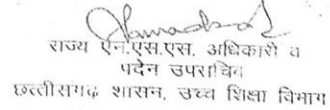 राज्य एन.एस.एस. अधिकारी व
पदेन उपसचिव
छत्तीसगढ़ शासन, उच्च शिक्षा विभाग